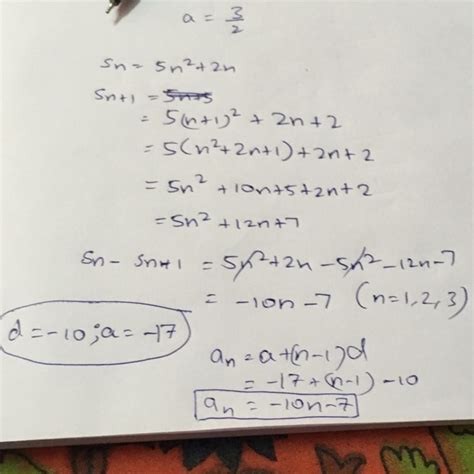 a = 3/2
Sn = 5n²+2n
Sn+1 =
= 5(n+1)² + 2n+2
= 5(n²+2n+1)+2n+2
= 5n² + 10n+5+2n+2
= 5n² + 12n+7
Sn - Sn+1 = 5n²+2n - 5n² - 12n - 7
= -10n - 7 (n=1,2,3)
d = -10; a = -17
an = a+(n-1)d
= -17+(n-1) - 10
an = -10n - 7